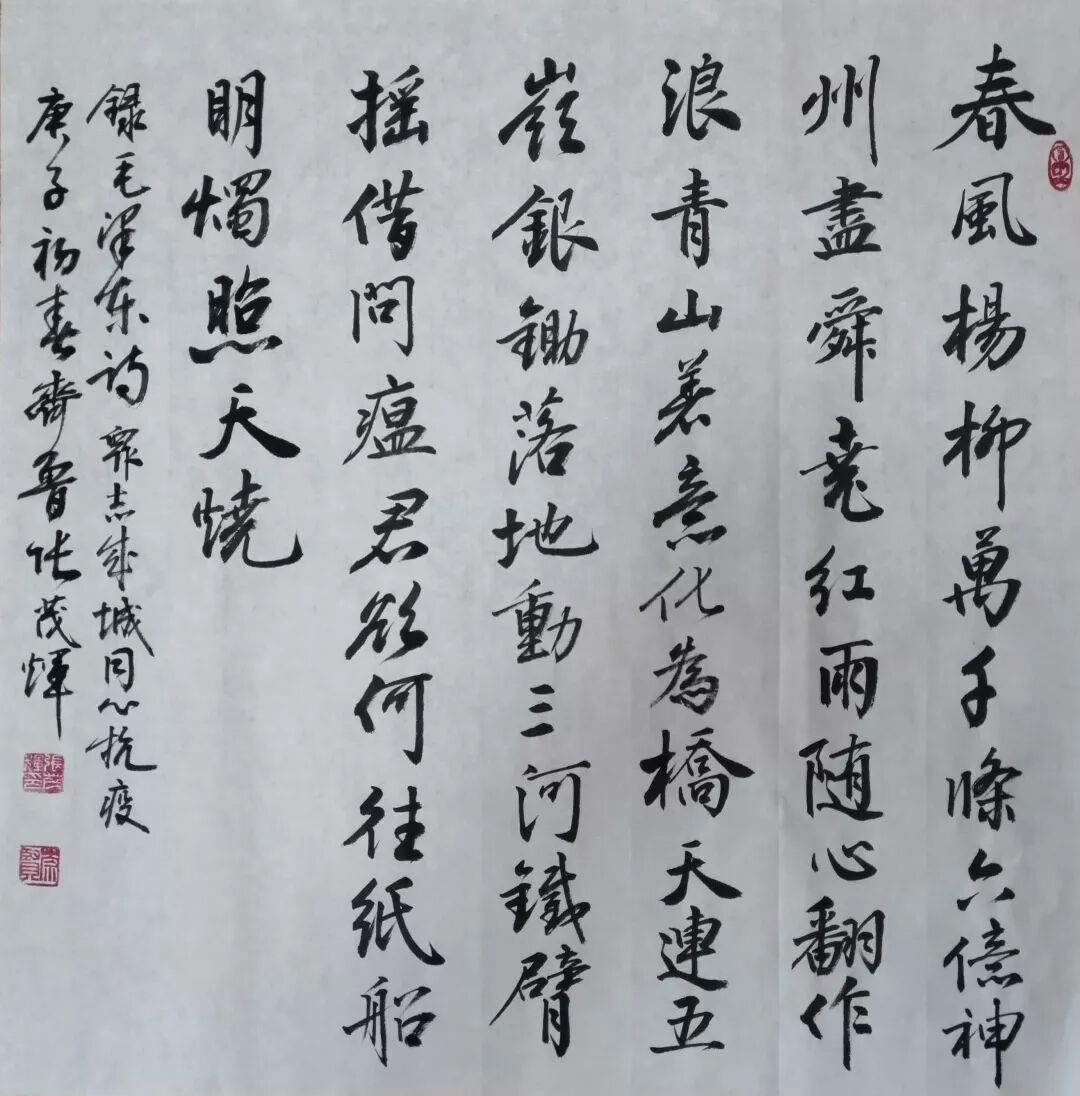 春風楊柳萬千條六億神
州盡舜堯红雨随心翻作
浪青山着意化為橋天連五
嶺銀鋤落地動三河鐵臂
摇借問瘟君欲何往紙船
明燭照天燒
録毛泽东诗眾志成城同心抗疫
庚子初春齊魯张茂煇